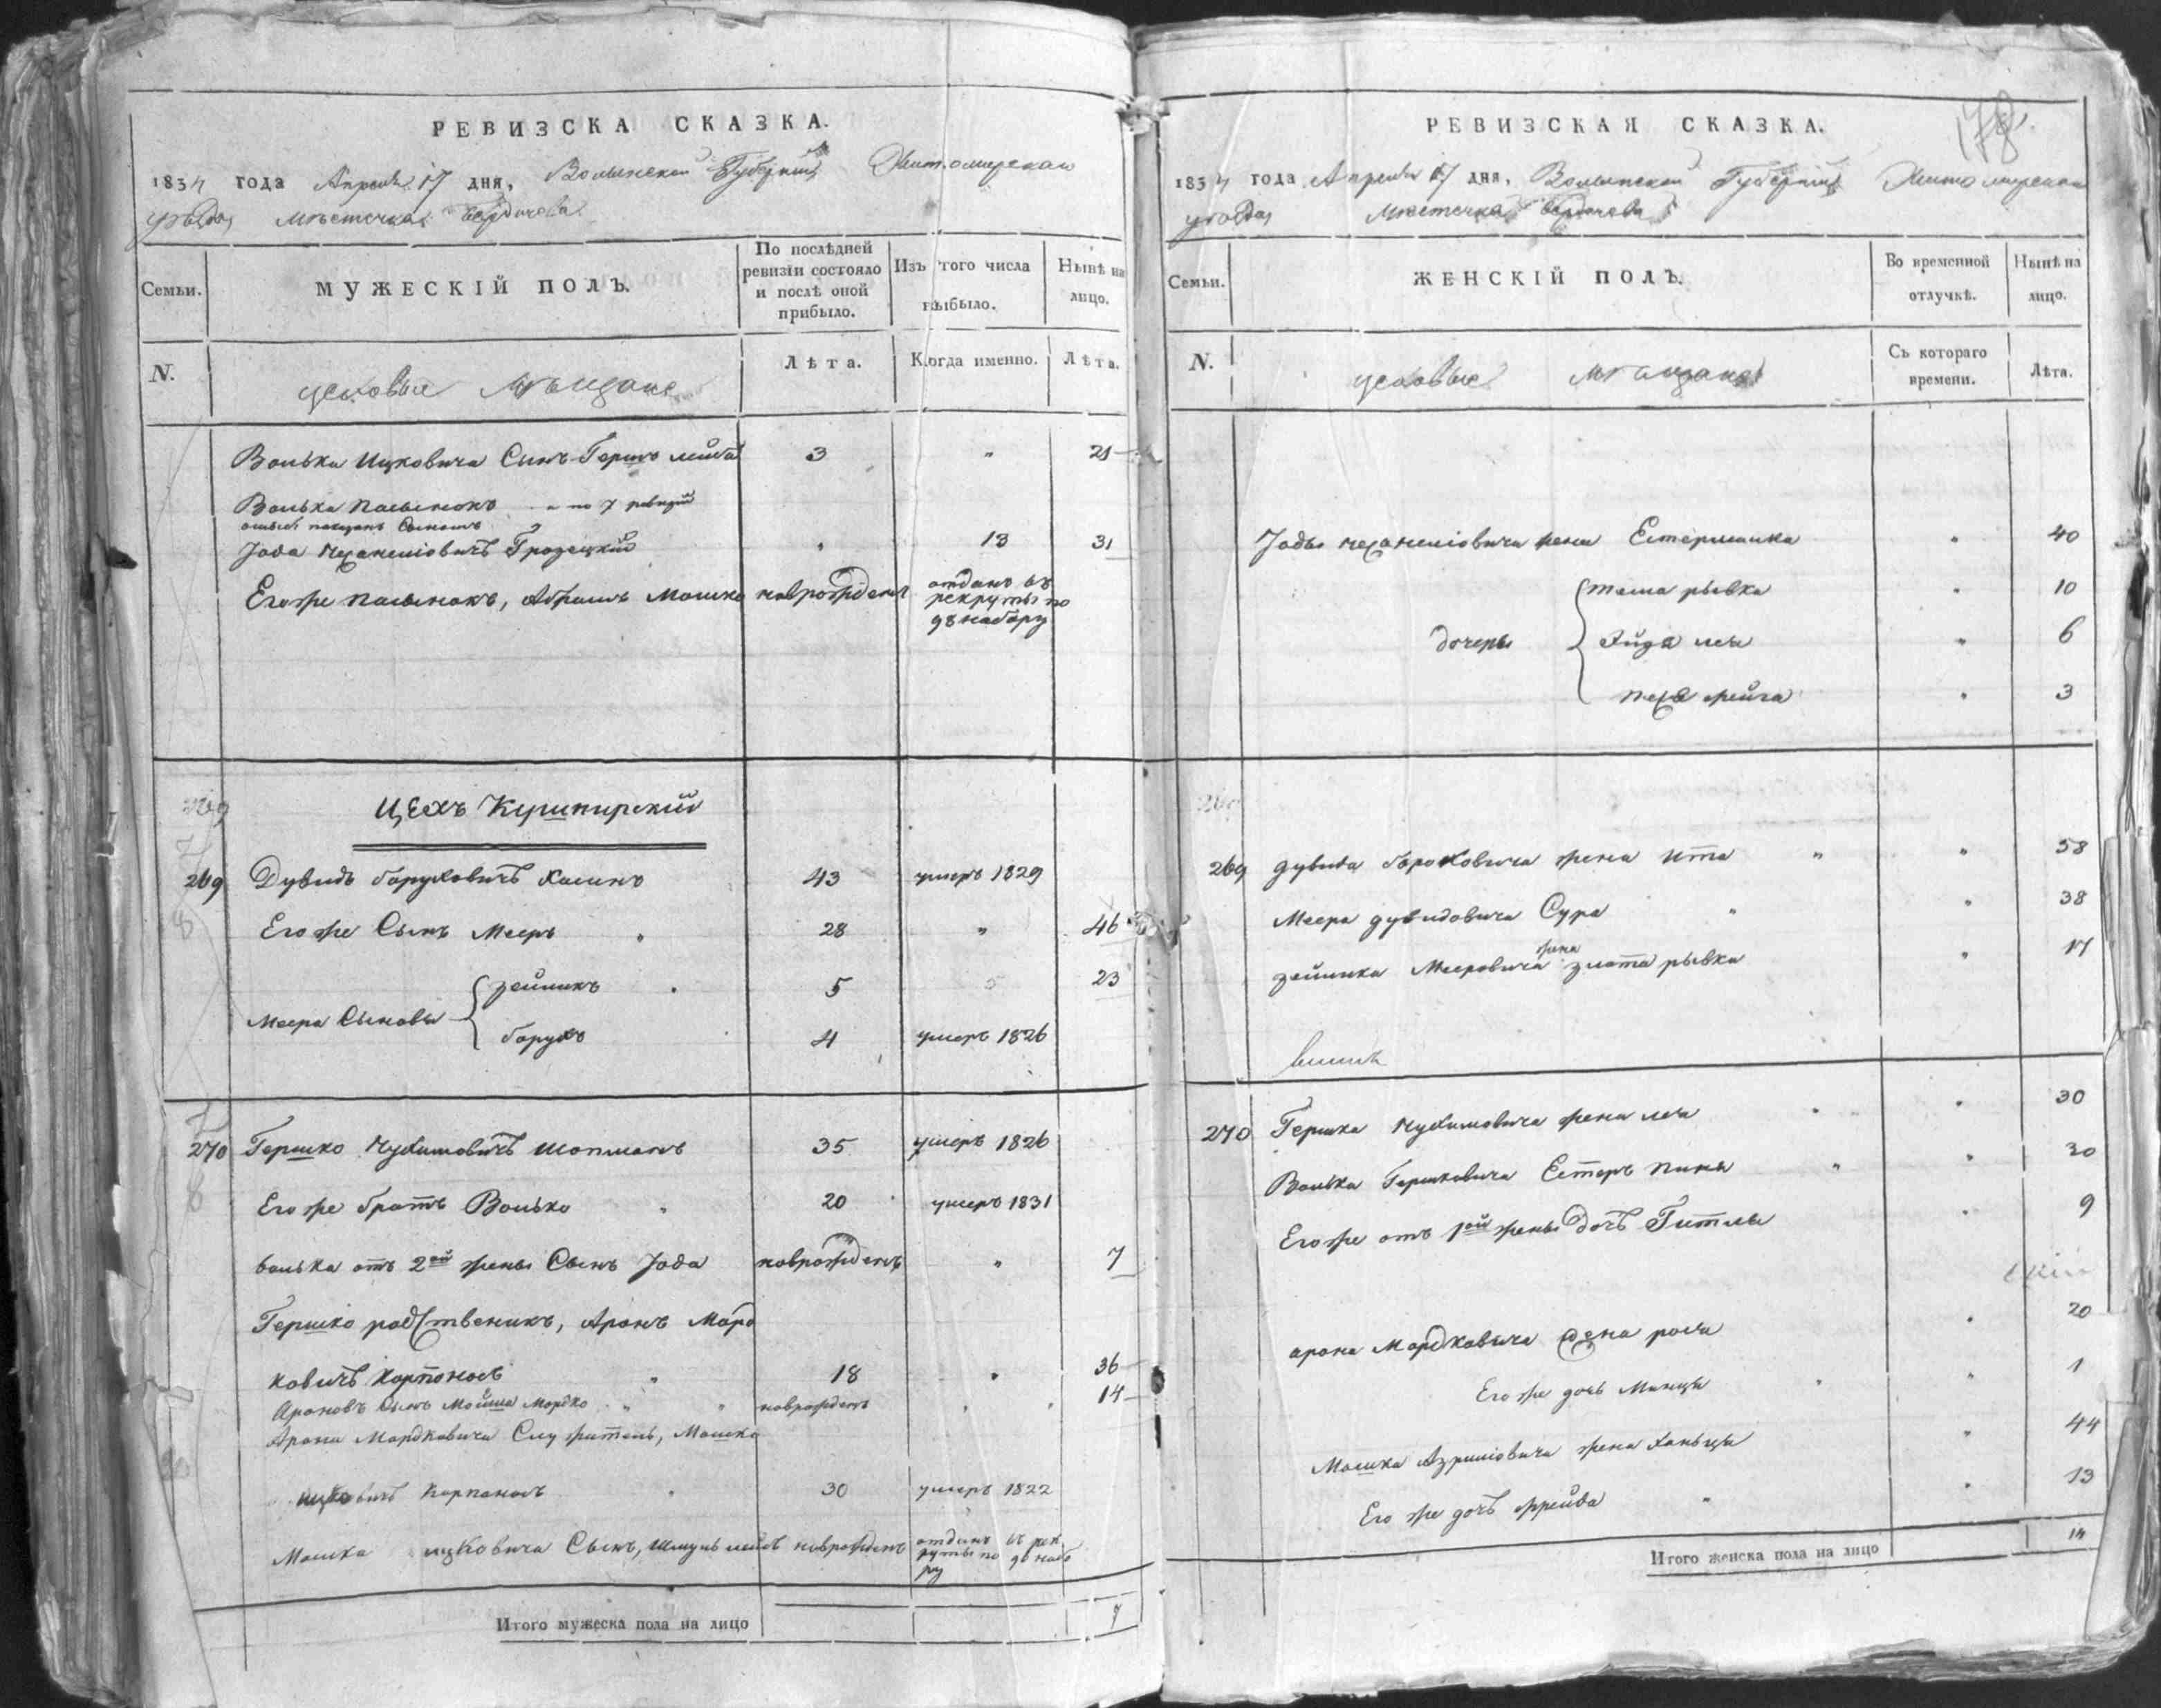 РЕВИЗСКА СКАЗКА.
1834 года Апреля 17 дня, Волынской Губернии Житомирскаго
уезда местечка Бердичева
Семьи.
МУЖЕСКІЙ ПОЛЪ.
По послѣдней
ревизіи состояло
и послѣ оной
прибыло.
Изъ того числа
выбыло.
Нынѣ на
лицо.
N.
цеховые Мѣщане
Лѣта.
Когда именно.
Лѣта.
Волька Ицковича Сынъ Гершъ лейба 3 " 21
Волька пасынокъ по 7 ревизии
Сыномъ
Іода Гродецкий " 13 31
Егоже пасынокъ, Абрамъ Мошко новорожденъ отданъ въ
рекруты по
98 набору
269
Цехъ Кушнирский
269 Дувидъ Боруховичъ 43 умеръ 1829
Егоже Сынъ Мееръ " 28 " 46
Меера Сыновья
зейликъ 5 23
борухъ 4 умеръ 1826
270 Гершко Нухимовичъ Шопманъ 35 умеръ 1826
Его же братъ Волько " 20 умеръ 1831
Волька отъ 2ой жены Сынъ Іода новорожденъ " 7
Гершко родственикъ, Аронъ Мард
ковичъ 18 " 36
Ароновъ Сынъ Мордко " " новорожденъ " " 14
Арона Мардковича Служитель, Мошко
ицковичъ " 30 умеръ 1822
Мошка ицковича Сынъ, Шмуль лейбъ новорожденъ отданъ въ рек
руты по набо
ру
Итого мужеска пола на лицо 7
РЕВИЗСКАЯ СКАЗКА.
178
1834 года Апреля 17 дня, Волынской Губернии Житомирскаго
уезда Местечка Бердичева
Семьи.
ЖЕНСКІЙ ПОЛЪ.
Во временной
отлучкѣ.
Нынѣ на
лицо.
N.
цеховые Мѣщане
Съ котораго
времени.
Лѣта.
Іоды жена Естермилка " 40
дочеры
рывка " 10
леа " 6
фейга " 3
269 Дувида Боруховича жена Ита " " 58
Меера Дувидовича Сура " " 38
жена
зейлика Мееровича злота рывка " 17
270 Гершка Нухимовича жена леа " " 30
Волька Гершковича Естеръ " " 30
Егоже отъ 1ой жены дочъ Гитля " 9
Арона Мордковича жена " 20
Его же дочь Минцы " " 1
Мошка жена Ханьця " 44
Его же дочъ фрейда " " 13
Итого женска пола на лицо 14